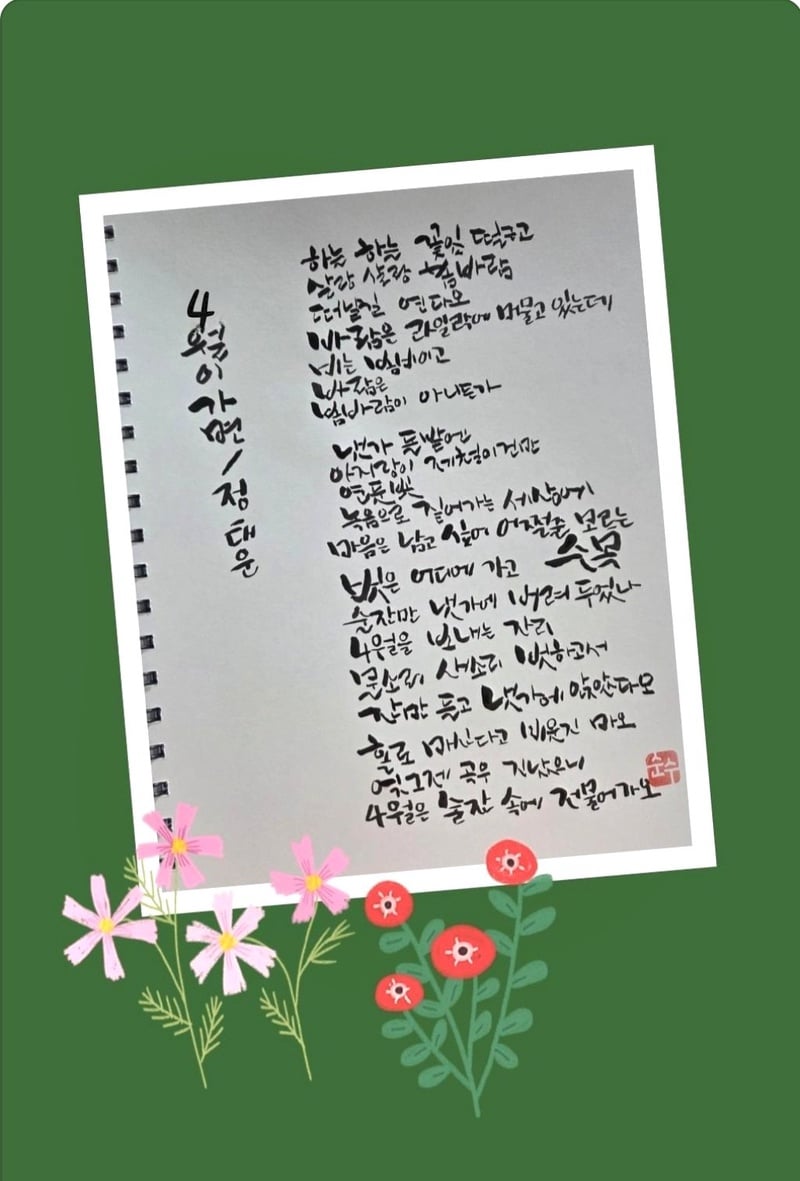 4월이 가면 / 정태운
하늘 하늘 꽃잎 떨구고
살랑 살랑 봄바람
떠날질 연다오
바람은 라일락에 머물고 있는데
비는 봄비이고
바람은
봄바람이 아니든가
냇가 풀밭엔
아지랑이 제철이건만
연푸른빛
녹음으로 짙어가는 세상에
마음은 남고 싶어 어쩔줄 모르는
순목
벗은 어디에 가고
술잔만 냇가에 버려 두었나
4월을 보내는 자리
물소리 새소리 벗하고서
잔만 들고 냇가에 앉았다오
홀로 마신다고 비웃진 마오
엊그제 곡우 지났으니
4월은 술잔 속에 저물어가오
순수